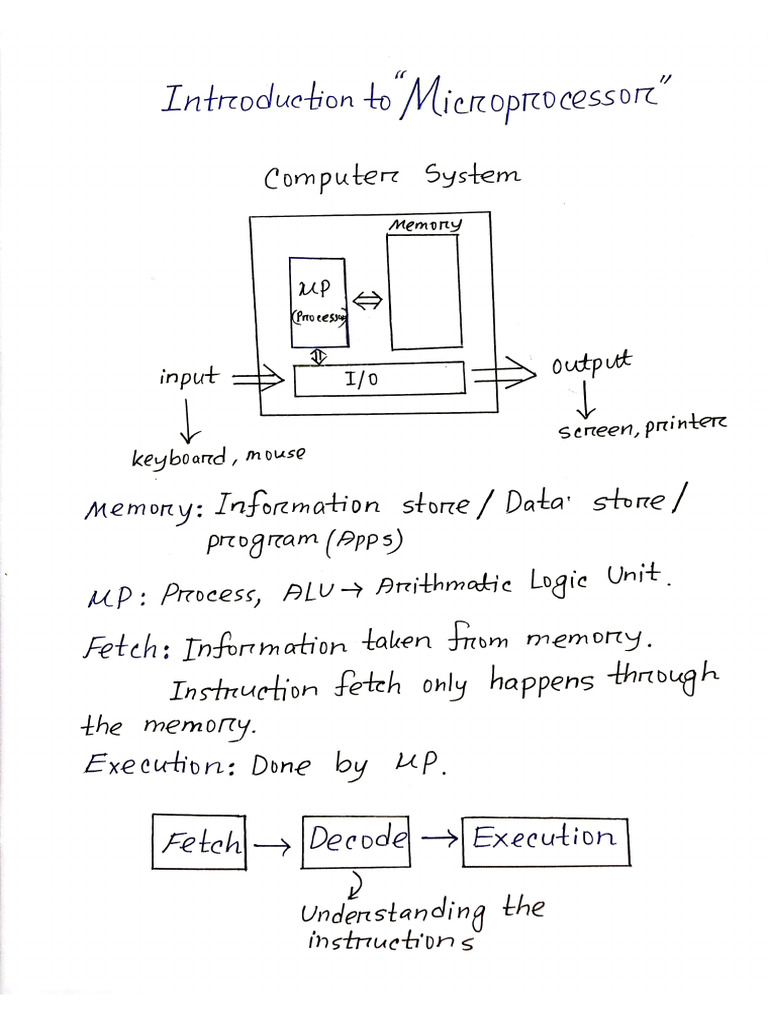 Introduction to "Microprocessor"
Computer System
Memory
μP
(Process)
I/O
input
output
keyboard, mouse
screen, printer
Memory: Information store / Data store /
program (Apps)
μP: Process, ALU → Arithmatic Logic Unit.
Fetch: Information taken from memory.
Instruction fetch only happens through
the memory.
Execution: Done by μP.
Fetch → Decode → Execution
Understanding the
instructions